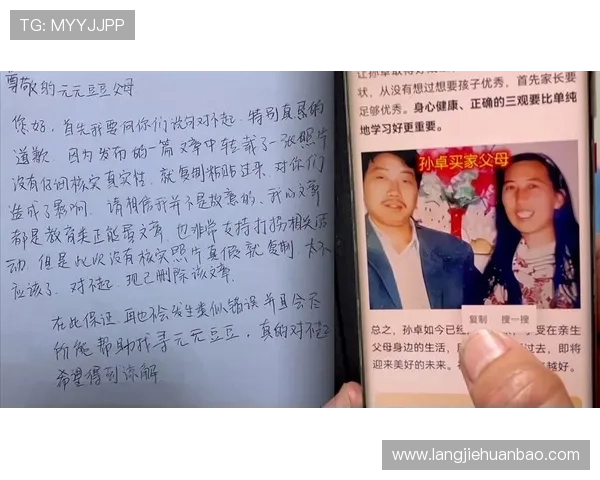 TG: MYYJJPP
尊敬的元元豆豆父母
您好,首先我要向你们说句对不起,特别真恳的
道歉。因为发布的一篇文章中转载了一张照片
没有仔细核实真实性,就复制粘贴过来,对你们
造成了影响,请相信我并不是故意的,我的文章
都是教育类正能量文章,也非常支持打拐相关活
动,但是此次没有核实照片真假就复制,太不
应该了,对不起,现已删除该文章。
在此保证,再也不会发生类似错误并且会尽
所能帮助找寻元元豆豆,真的对不起
希望得到谅解
让孙卓取得好成
状,从没有想过要孩子优秀,首先家长要
足够优秀。身心健康、正确的三观要比单纯
地学习好更重要。
孙卓买家父母
复制 搜一搜
总之,孙卓如今已经 享受在亲生
父母身边的生活, 过去,即将
迎来美好的未来。 越好。
www.langjiehuanbao.com